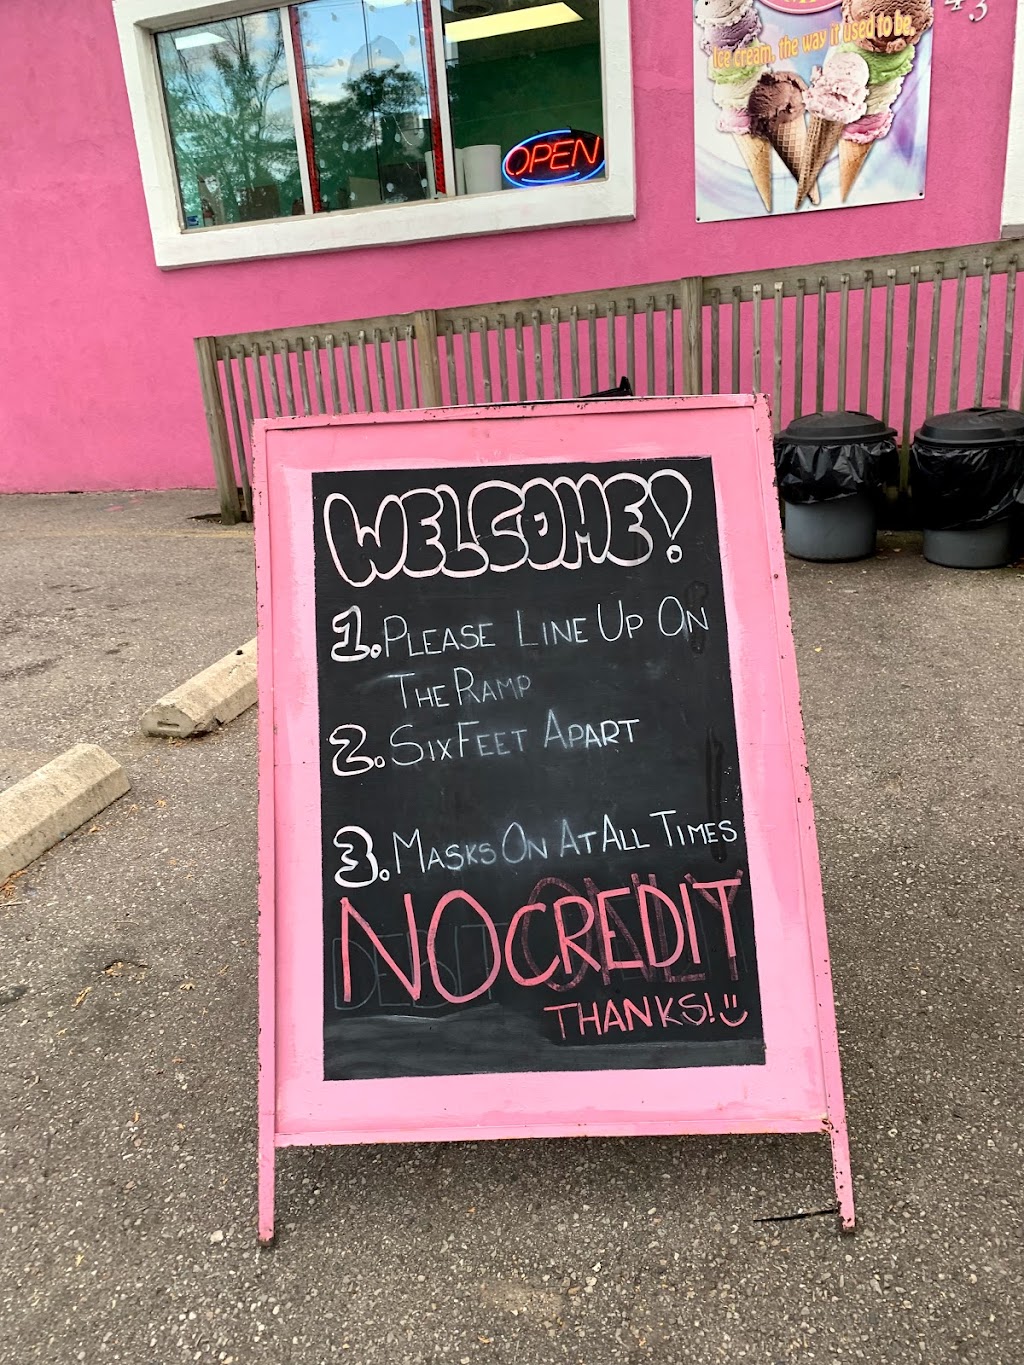 43
Ice cream, the way it used to be.
OPEN
WELCOME!
1. PLEASE LINE UP ON
THE RAMP
2. SIX FEET APART
3. MASKS ON AT ALL TIMES
NO CREDIT
DEBIT ONLY
THANKS!